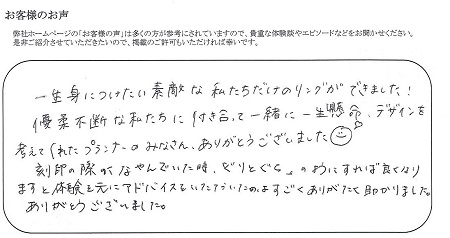 お客様のお声
弊社ホームページの「お客様の声」は多くの方が参考にされていますので、貴重な体験談やエピソードなどをお聞かせください。
是非ご紹介させていただきたいので、掲載のご許可もいただければ幸いです。
一生身につけたい素敵な私たちだけのリングができました！
優柔不断な私たちに付き合って一緒に一生懸命、デザインを
考えてくれたプランナーのみなさん、ありがとうございました
刻印の際になやんでいた時、
のようにすれば良くなり
ますと体験を元にアドバイスをいただいたのはすごくありがたく助かりました。
ありがとうございました。